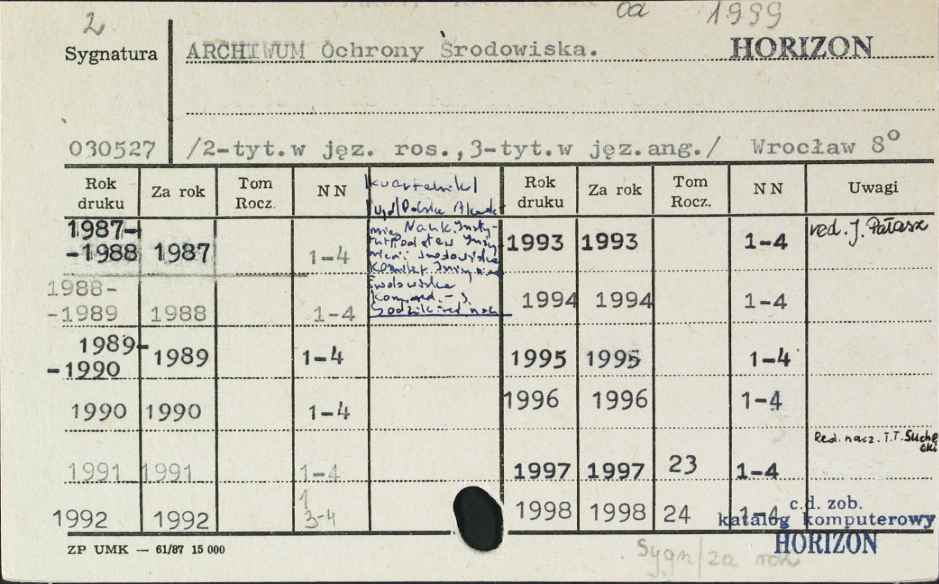 2
od 1999
Sygnatura
ARCHIWUM Ochrony Środowiska.
HORIZON
030527
/2-tyt.w jęz. ros.,3-tyt.w jęz.ang./ Wrocław 8⁰
Rok druku Za rok Tom Rocz. NN Rok druku Za rok Tom Rocz. NN Uwagi
kwartalnik/
wyd/Polska Akade
mia Nauk. Insty-
tut Podstaw Inży
nierii Środowiska
Komitet Inżynierii
Środowiska
1987-
-1988 1987 1-4
1988-
-1989 1988 1-4
1989-
-1990 1989 1-4
1990 1990 1-4
1991 1991 1-4
1992 1992 1
3-4
1993 1993 1-4 red. J. Pałasz
1994 1994 1-4
1995 1995 1-4
1996 1996 1-4
Red. nacz. T.T. Suche
cki
1997 1997 23 1-4
1998 1998 24 1-4
c.d. zob.
katalog komputerowy
HORIZON
ZP UMK — 61/87 15 000
Sygn/za rok